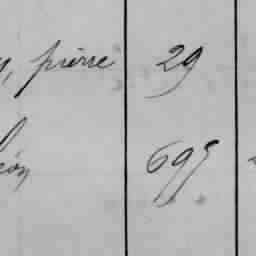 y, pierre 29
Léon 699